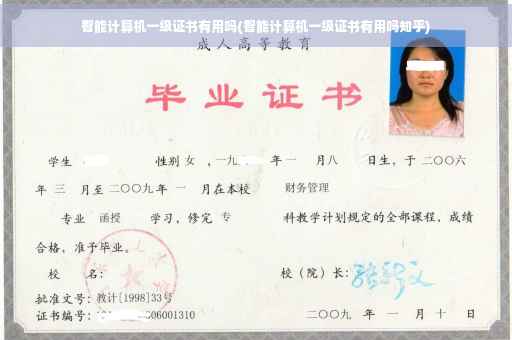 智能计算机一级证书有用吗(智能计算机一级证书有用吗知乎)
成人高等教育
毕业证书
学生 性别 女 ，一九 年 一 月八 日生，于 二〇〇六
年 三 月至 二〇〇九 年 一 月在本校 财务管理
专业 函授 学习，修完 专 科教学计划规定的全部课程，成绩
合格，准予毕业。
校 名： 校（院）长：
批准文号：教计[1998]33号
证书编号： 06001310 二〇〇九 年 一 月 十 日